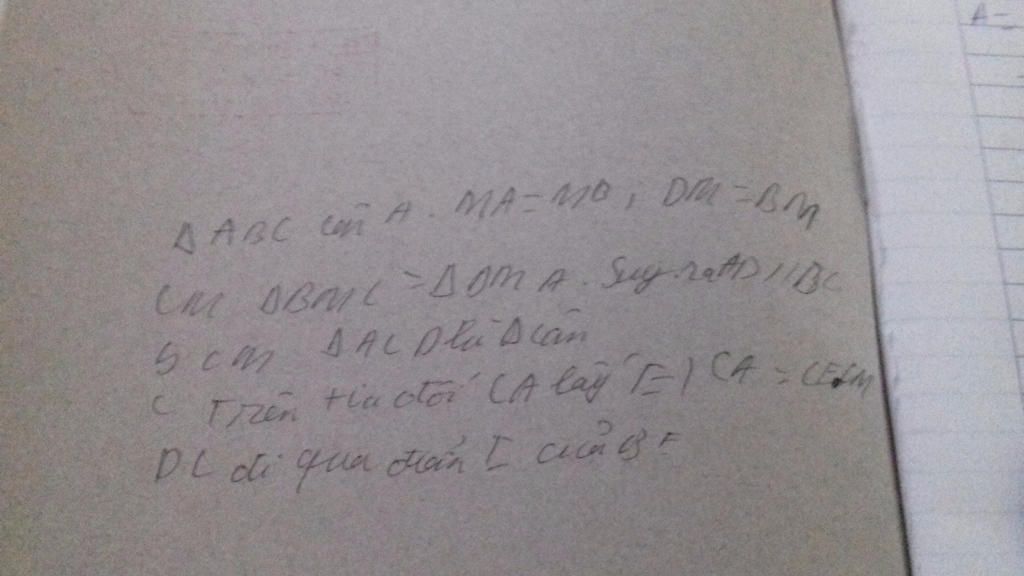 Δ ABC cân A. MA = MB; DM = BM
CM ΔBMC = ΔDMA. Suy ra AD // BC
b cm ΔACD là Δ cân
c Trên tia đối CA lấy E) CA = CE. CM
DC đi qua điểm I của BE
A =